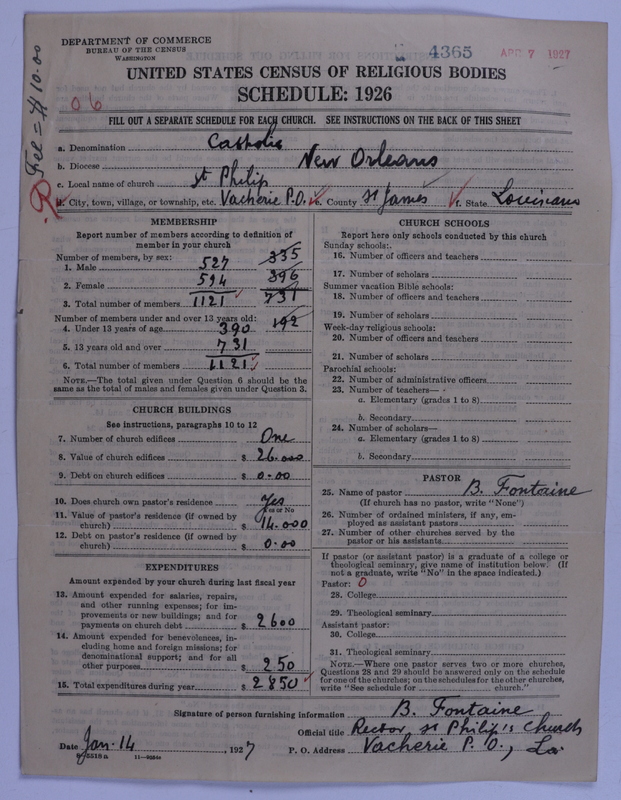 DEPARTMENT OF COMMERCE
BUREAU OF THE CENSUS
WASHINGTON
4365
APR 7 1927
Fee = $ 10.00
06
UNITED STATES CENSUS OF RELIGIOUS BODIES
SCHEDULE: 1926
FILL OUT A SEPARATE SCHEDULE FOR EACH CHURCH. SEE INSTRUCTIONS ON THE BACK OF THIS SHEET
a. Denomination Catholic
b. Diocese New Orleans
c. Local name of church St Philip
d. City, town, village, or township, etc. Vacherie P.O. e. County St James f. State Louisiana
MEMBERSHIP
Report number of members according to definition of
member in your church
Number of members, by sex:
1. Male 527 335
2. Female 594 396
3. Total number of members 1121 731
Number of members under and over 13 years old:
4. Under 13 years of age 390 192
5. 13 years old and over 731
6. Total number of members 1121
NOTE.—The total given under Question 6 should be the
same as the total of males and females given under Question 3.
CHURCH BUILDINGS
See instructions, paragraphs 10 to 12
7. Number of church edifices One
8. Value of church edifices $ 26.000
9. Debt on church edifices $ 0.00
10. Does church own pastor's residence Yes
Yes or No
11. Value of pastor's residence (if owned by
church) $ 14.000
12. Debt on pastor's residence (if owned by
church) $ 0.00
EXPENDITURES
Amount expended by your church during last fiscal year
13. Amount expended for salaries, repairs,
and other running expenses; for im-
provements or new buildings; and for
payments on church debt $ 2600
14. Amount expended for benevolences, in-
cluding home and foreign missions; for
denominational support; and for all
other purposes $ 250
15. Total expenditures during year $ 2850
CHURCH SCHOOLS
Report here only schools conducted by this church
Sunday schools:
16. Number of officers and teachers
17. Number of scholars
Summer vacation Bible schools:
18. Number of officers and teachers
19. Number of scholars
Week-day religious schools:
20. Number of officers and teachers
21. Number of scholars
Parochial schools:
22. Number of administrative officers
23. Number of teachers—
a. Elementary (grades 1 to 8)
b. Secondary
24. Number of scholars—
a. Elementary (grades 1 to 8)
b. Secondary
PASTOR
25. Name of pastor B. Fontaine
(If church has no pastor, write "None")
26. Number of ordained ministers, if any, em-
ployed as assistant pastors
27. Number of other churches served by the
pastor or his assistants
If pastor (or assistant pastor) is a graduate of a college or
theological seminary, give name of institution below. (If
not a graduate, write "No" in the space indicated.)
Pastor: 0
28. College
29. Theological seminary
Assistant pastor:
30. College
31. Theological seminary
NOTE.—Where one pastor serves two or more churches,
Questions 28 and 29 should be answered only on the schedule
for one of the churches; on the schedules for the other churches,
write "See schedule for church."
Signature of person furnishing information B. Fontaine
Official title Rector St Philip's Church
Date Jan. 14, 1927 P. O. Address Vacherie P. O., La.